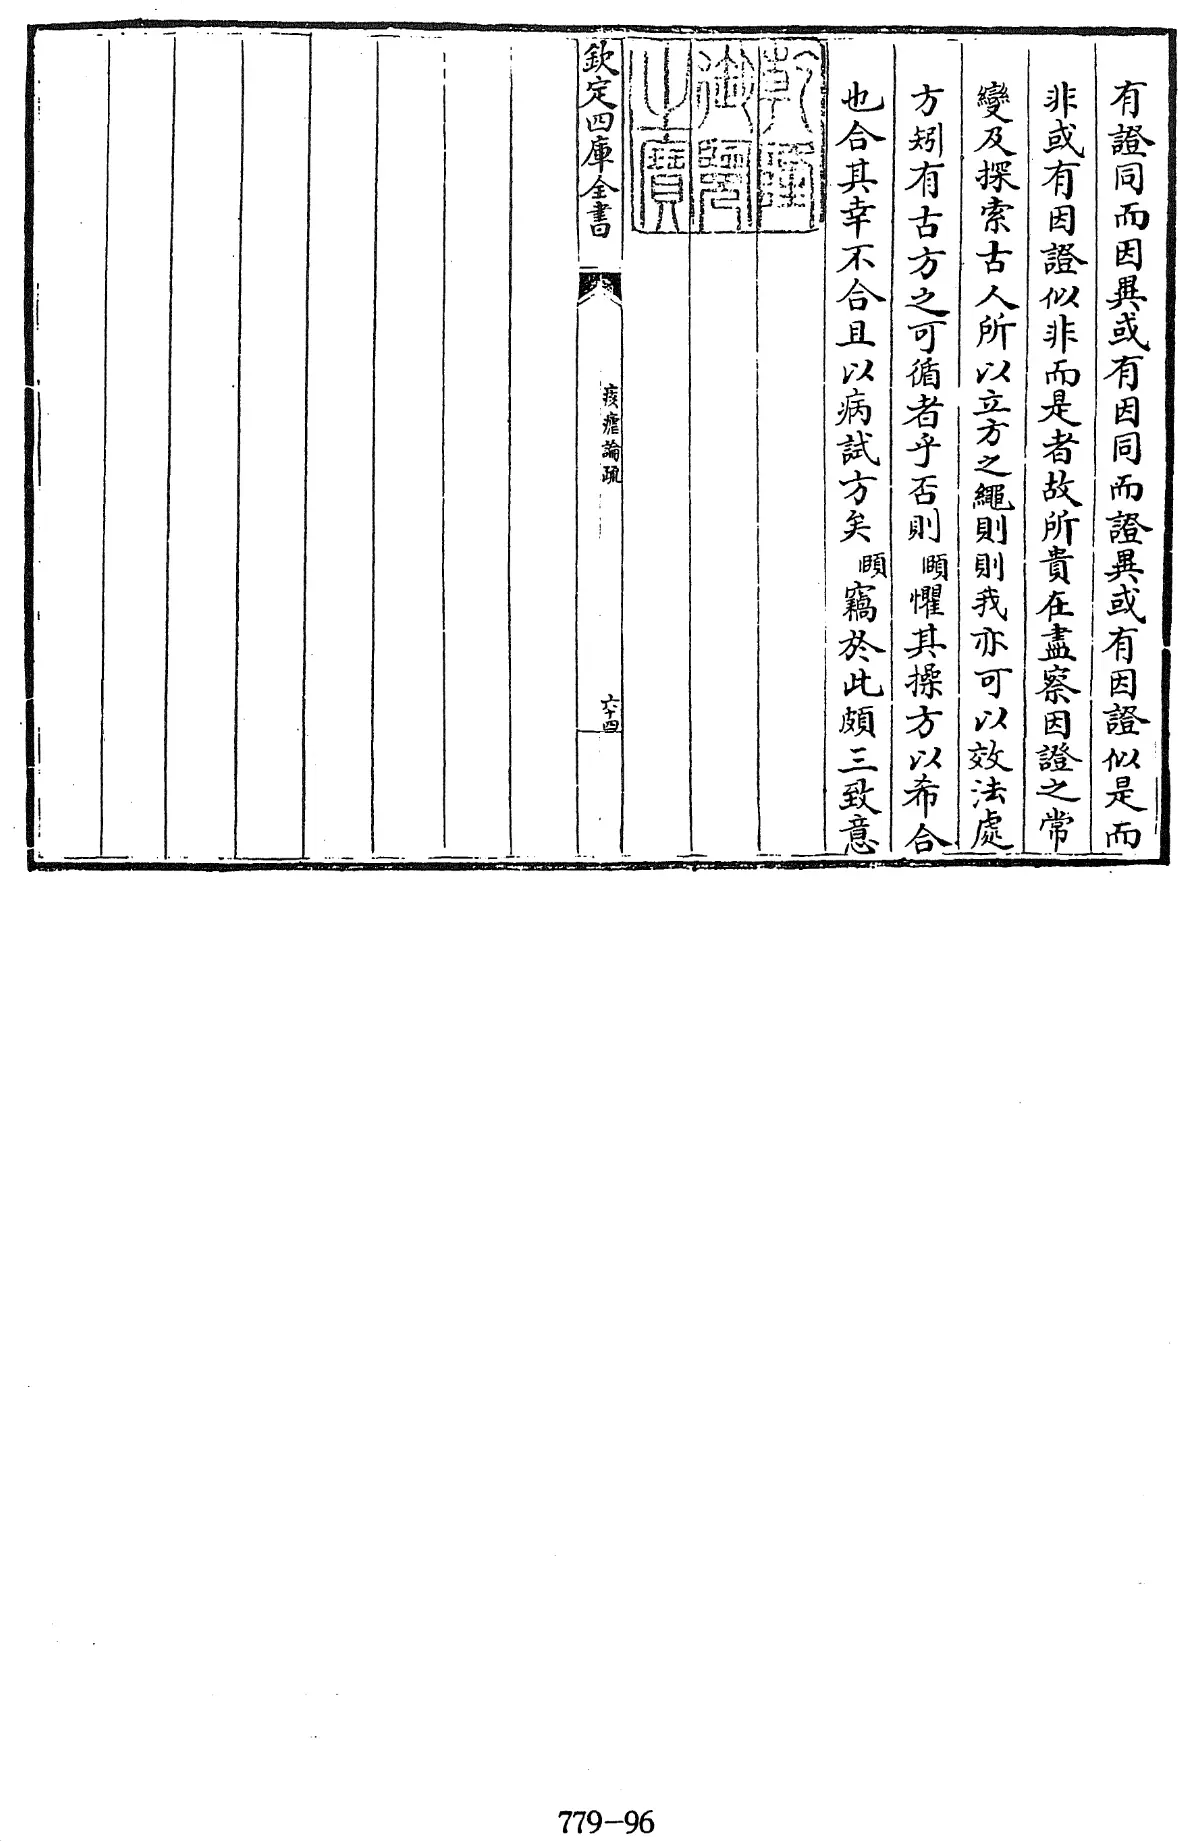 有證同而因異或有因同而證異或有因證似是而
非或有因證似非而是者故所貴在盡察因證之常
變及探索古人所以立方之繩則則我亦可以效法處
方矧有古方之可循者乎否則頤懼其操方以希合
也合其幸不合且以病試方矣頤竊於此頗三致意
乾隆
御覽
之寶
欽定四庫全書
痎瘧論疏
六十四
779-96